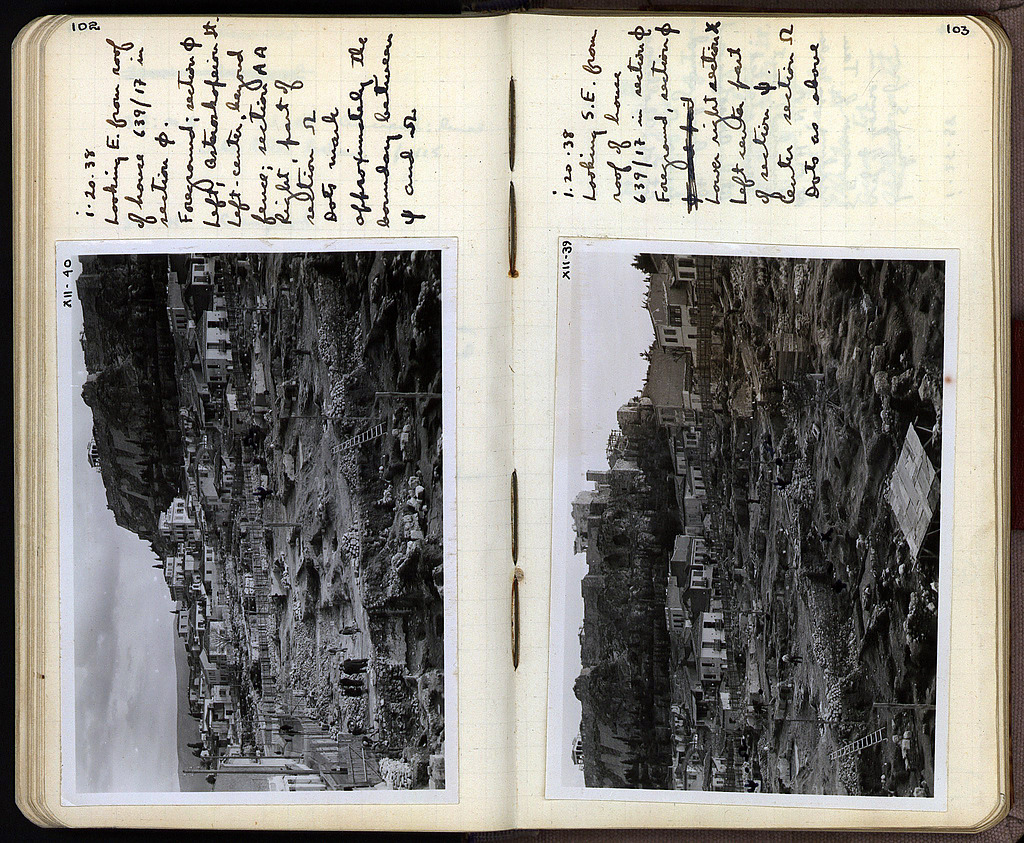 102
1.20.38
Looking E. from roof
of house 639/17 in
section Φ.
Foreground; section Φ
Left, Asteroskopeion St.
Left-center, beyond
fence; section AA
Right, part of
section Ω
Dots mark
approximately the
boundary between
Ψ and Ω.
XII-40
103
1.20.38
Looking S.E. from
roof of house
639/17 in section Φ
Foreground, section Φ
Lower right section X
Left center part
of section Ψ.
Center section Ω
Dots as above
XII-39